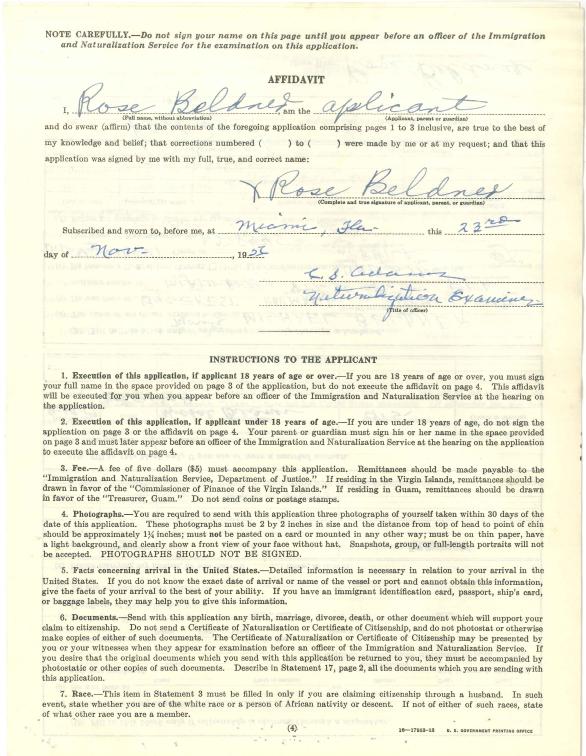 NOTE CAREFULLY.—Do not sign your name on this page until you appear before an officer of the Immigration
and Naturalization Service for the examination on this application.
AFFIDAVIT
I, Rose Beldner, am the aplicant
(Full name, without abbreviation) (Applicant, parent or guardian)
and do swear (affirm) that the contents of the foregoing application comprising pages 1 to 3 inclusive, are true to the best of
my knowledge and belief; that corrections numbered ( ) to ( ) were made by me or at my request; and that this
application was signed by me with my full, true, and correct name:
X Rose Beldner
(Complete and true signature of applicant, parent, or guardian)
Subscribed and sworn to, before me, at Miami, Fla. this 23rd
day of Nov- , 19
C. S. Adams
Naturalization Examiner
(Title of officer)
INSTRUCTIONS TO THE APPLICANT
1. Execution of this application, if applicant 18 years of age or over.—If you are 18 years of age or over, you must sign
your full name in the space provided on page 3 of the application, but do not execute the affidavit on page 4. This affidavit
will be executed for you when you appear before an officer of the Immigration and Naturalization Service at the hearing on
the application.
2. Execution of this application, if applicant under 18 years of age.—If you are under 18 years of age, do not sign the
application on page 3 or the affidavit on page 4. Your parent or guardian must sign his or her name in the space provided
on page 3 and must later appear before an officer of the Immigration and Naturalization Service at the hearing on the application
to execute the affidavit on page 4.
3. Fee.—A fee of five dollars ($5) must accompany this application. Remittances should be made payable to the
"Immigration and Naturalization Service, Department of Justice." If residing in the Virgin Islands, remittances should be
drawn in favor of the "Commissioner of Finance of the Virgin Islands." If residing in Guam, remittances should be drawn
in favor of the "Treasurer, Guam." Do not send coins or postage stamps.
4. Photographs.—You are required to send with this application three photographs of yourself taken within 30 days of the
date of this application. These photographs must be 2 by 2 inches in size and the distance from top of head to point of chin
should be approximately 1¼ inches; must not be pasted on a card or mounted in any other way; must be on thin paper, have
a light background, and clearly show a front view of your face without hat. Snapshots, group, or full-length portraits will not
be accepted. PHOTOGRAPHS SHOULD NOT BE SIGNED.
5. Facts concerning arrival in the United States.—Detailed information is necessary in relation to your arrival in the
United States. If you do not know the exact date of arrival or name of the vessel or port and cannot obtain this information,
give the facts of your arrival to the best of your ability. If you have an immigrant identification card, passport, ship's card,
or baggage labels, they may help you to give this information.
6. Documents.—Send with this application any birth, marriage, divorce, death, or other document which will support your
claim to citizenship. Do not send a Certificate of Naturalization or Certificate of Citizenship, and do not photostat or otherwise
make copies of either of such documents. The Certificate of Naturalization or Certificate of Citizenship may be presented by
you or your witnesses when they appear for examination before an officer of the Immigration and Naturalization Service. If
you desire that the original documents which you send with this application be returned to you, they must be accompanied by
photostatic or other copies of such documents. Describe in Statement 17, page 2, all the documents which you are sending with
this application.
7. Race.—This item in Statement 3 must be filled in only if you are claiming citizenship through a husband. In such
event, state whether you are of the white race or a person of African nativity or descent. If not of either of such races, state
of what other race you are a member.
(4) 16—17983-12 U. S. GOVERNMENT PRINTING OFFICE